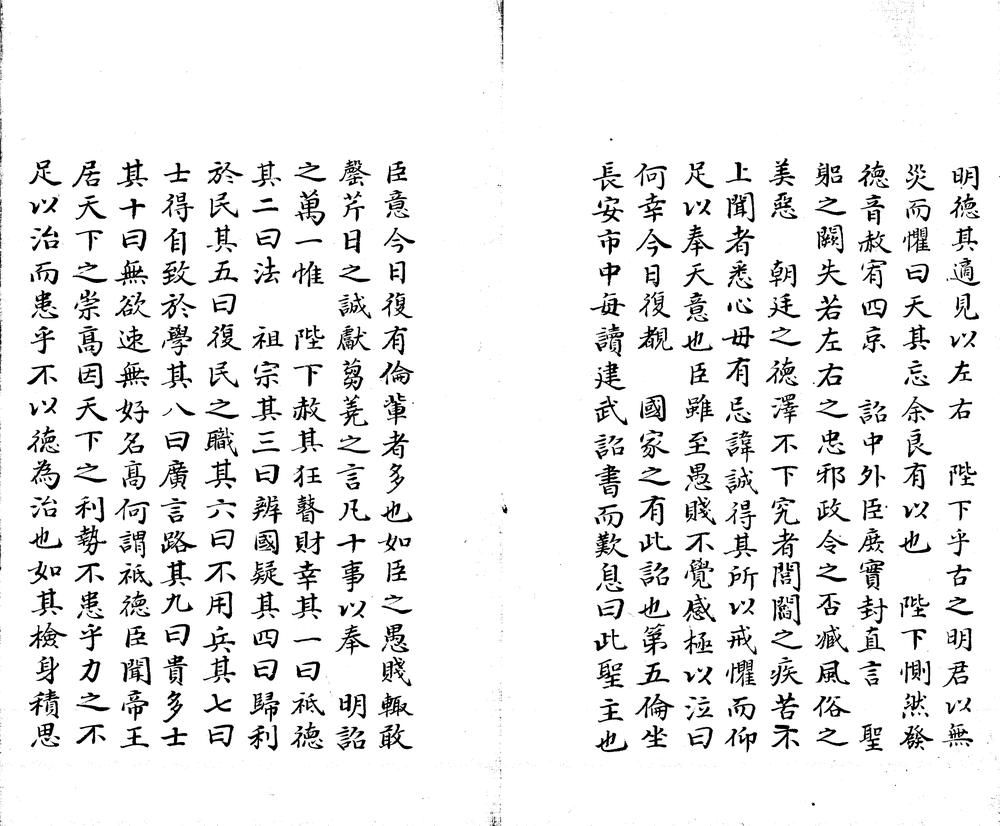 明德其適見以左右　陛下乎古之明君以無
災而懼曰天其忘余良有以也　陛下惻然發
德音赦宥四京　詔中外臣庶實封直言　聖
躬之闕失若左右之忠邪政令之否臧風俗之
美惡　朝廷之德澤不下究者閭閻之疾苦不
上聞者悉心毋有忌諱誠得其所以戒懼而仰
足以奉天意也臣雖至愚賤不覺感極以泣曰
何幸今日復覩　國家之有此詔也第五倫坐
長安市中每讀建武詔書而歎息曰此聖主也
臣意今日復有倫輩者多也如臣之愚賤輙敢
罄芹日之誠獻蒭蕘之言凡十事以奉　明詔
之萬一惟　陛下赦其狂瞽財幸其一曰祗德
其二曰法　祖宗其三曰辨國疑其四曰歸利
於民其五曰復民之職其六曰不用兵其七曰
士得自致於學其八曰廣言路其九曰貴多士
其十曰無欲速無好名高何謂祗德臣聞帝王
居天下之崇高因天下之利勢不患乎力之不
足以治而患乎不以德為治也如其檢身積思